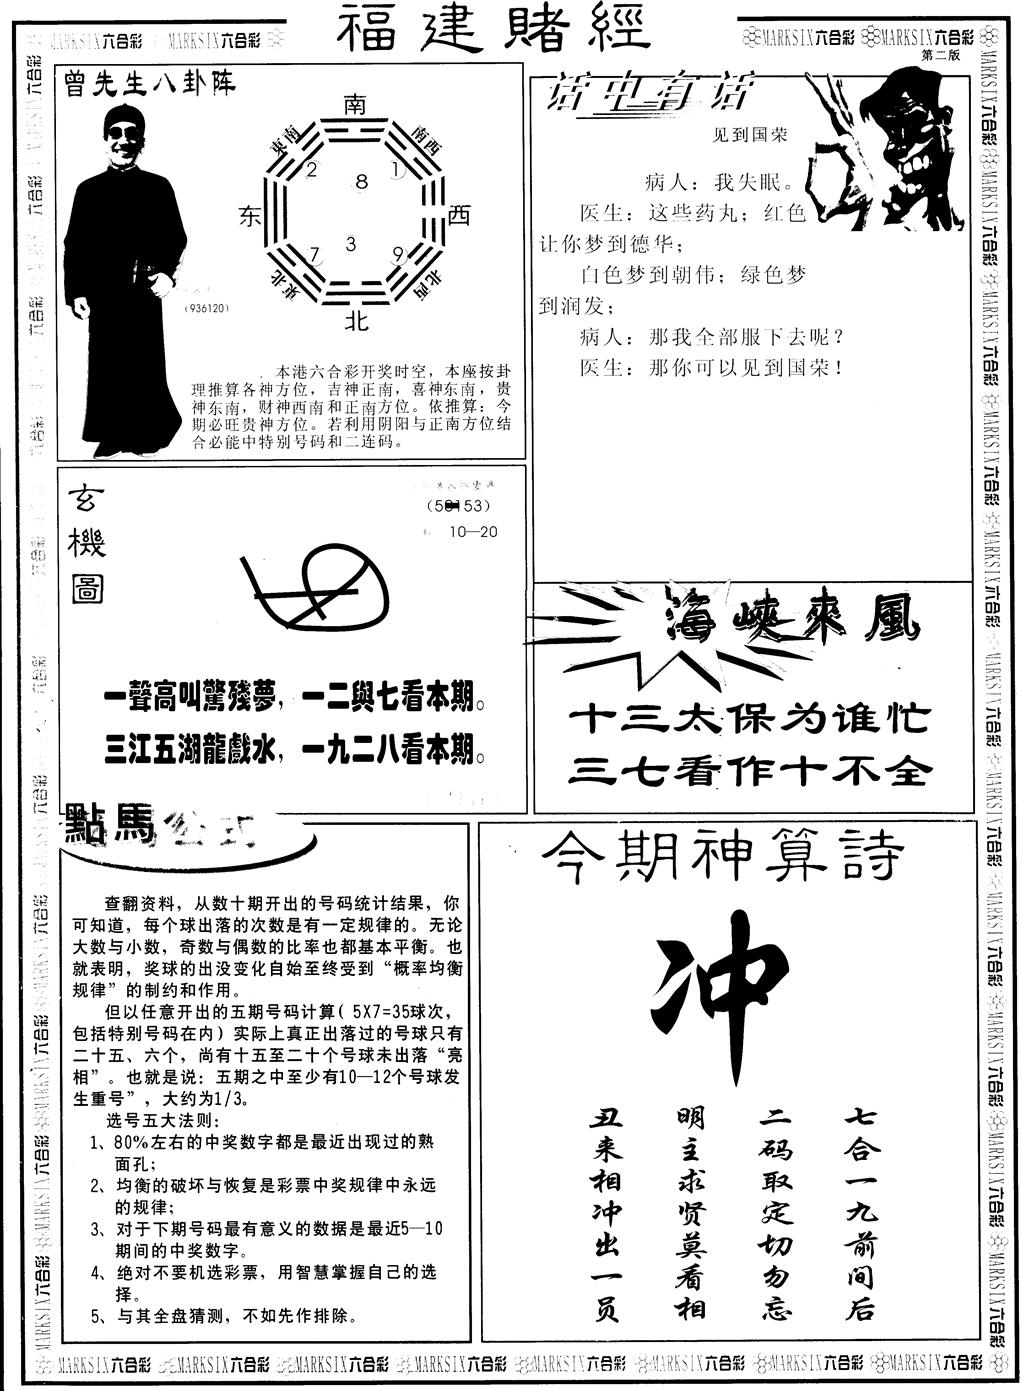 福建賭經
MARKSIX六合彩 MARKSIX六合彩
MARKSIX六合彩 MARKSIX六合彩
第二版
曾先生八卦阵
南
東南 南西
2 8 1
东 西
7 3 9
東北 北西
北
(936120)
本港六合彩开奖时空，本座按卦
理推算各神方位，吉神正南，喜神东南，贵
神东南，财神西南和正南方位。依推算：今
期必旺贵神方位。若利用阴阳与正南方位结
合必能中特别号码和二连码。
话中有话
见到国荣
病人：我失眠。
医生：这些药丸；红色
让你梦到德华；
白色梦到朝伟；绿色梦
到润发；
病人：那我全部服下去呢？
医生：那你可以见到国荣！
玄機圖
10—20
一聲高叫驚殘夢，一二與七看本期。
三江五湖龍戲水，一九二八看本期。
海峽來風
十三太保为谁忙
三七看作十不全
點馬公式
查翻资料，从数十期开出的号码统计结果，你
可知道，每个球出落的次数是有一定规律的。无论
大数与小数，奇数与偶数的比率也都基本平衡。也
就表明，奖球的出没变化自始至终受到“概率均衡
规律”的制约和作用。
但以任意开出的五期号码计算（5X7=35球次，
包括特别号码在内）实际上真正出落过的号球只有
二十五、六个，尚有十五至二十个号球未出落“亮
相”。也就是说：五期之中至少有10—12个号球发
生重号”，大约为1/3。
选号五大法则：
1、80%左右的中奖数字都是最近出现过的熟
面孔；
2、均衡的破坏与恢复是彩票中奖规律中永远
的规律；
3、对于下期号码最有意义的数据是最近5—10
期间的中奖数字。
4、绝对不要机选彩票，用智慧掌握自己的选
择。
5、与其全盘猜测，不如先作排除。
今期神算詩
冲
七合一九前间后
二码取定切勿忘
明主求贤莫看相
丑来相冲出一员
MARKSIX六合彩 MARKSIX六合彩 MARKSIX六合彩 MARKSIX六合彩 MARKSIX六合彩 MARKSIX六合彩 MARKSIX六合彩 MARKSIX六合彩